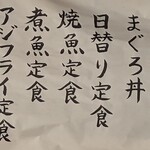 まぐろ丼
日替り定食
焼魚定食
煮魚定食
アジフライ定食